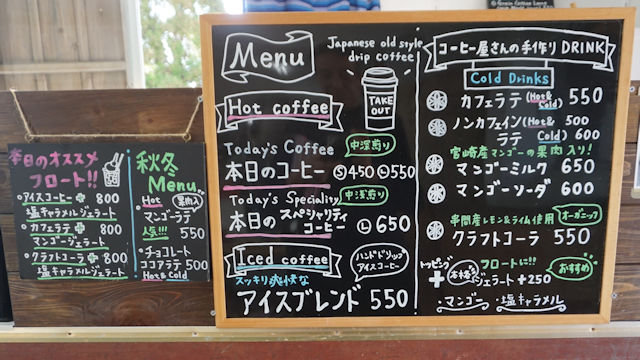 本日のオススメ
フロート!!
アイスコーヒー + 800
塩キャラメルジェラート
カフェラテ + 800
マンゴージェラート
クラフトコーラ + 800
塩キャラメルジェラート
秋冬
Menu
Hot
果肉入
マンゴーラテ
人気!!! 550
チョコレート
ココアラテ 500
Hot & Cold
Menu
Japanese old style
drip coffee
TAKE
OUT
Hot coffee
Today's Coffee
中深煎り
本日のコーヒー Ⓢ450 Ⓛ550
Today's Speciality
中深煎り
本日のスペシャリティ
コーヒー Ⓛ 650
Iced coffee
ハンドドリップ
アイスコーヒー
スッキリ爽快な
アイスブレンド 550
コーヒー屋さんの手作りDRINK
Cold Drinks
カフェラテ (Hot & Cold) 550
ノンカフェイン (Hot & 500
ラテ Cold) 600
宮崎産マンゴーの果肉入り!
マンゴーミルク 650
マンゴーソーダ 600
串間産レモン&ライム使用 オーガニック
クラフトコーラ 550
トッピング フロートに!! おすすめ
+ 本格 ジェラート +250
・マンゴー ・塩キャラメル